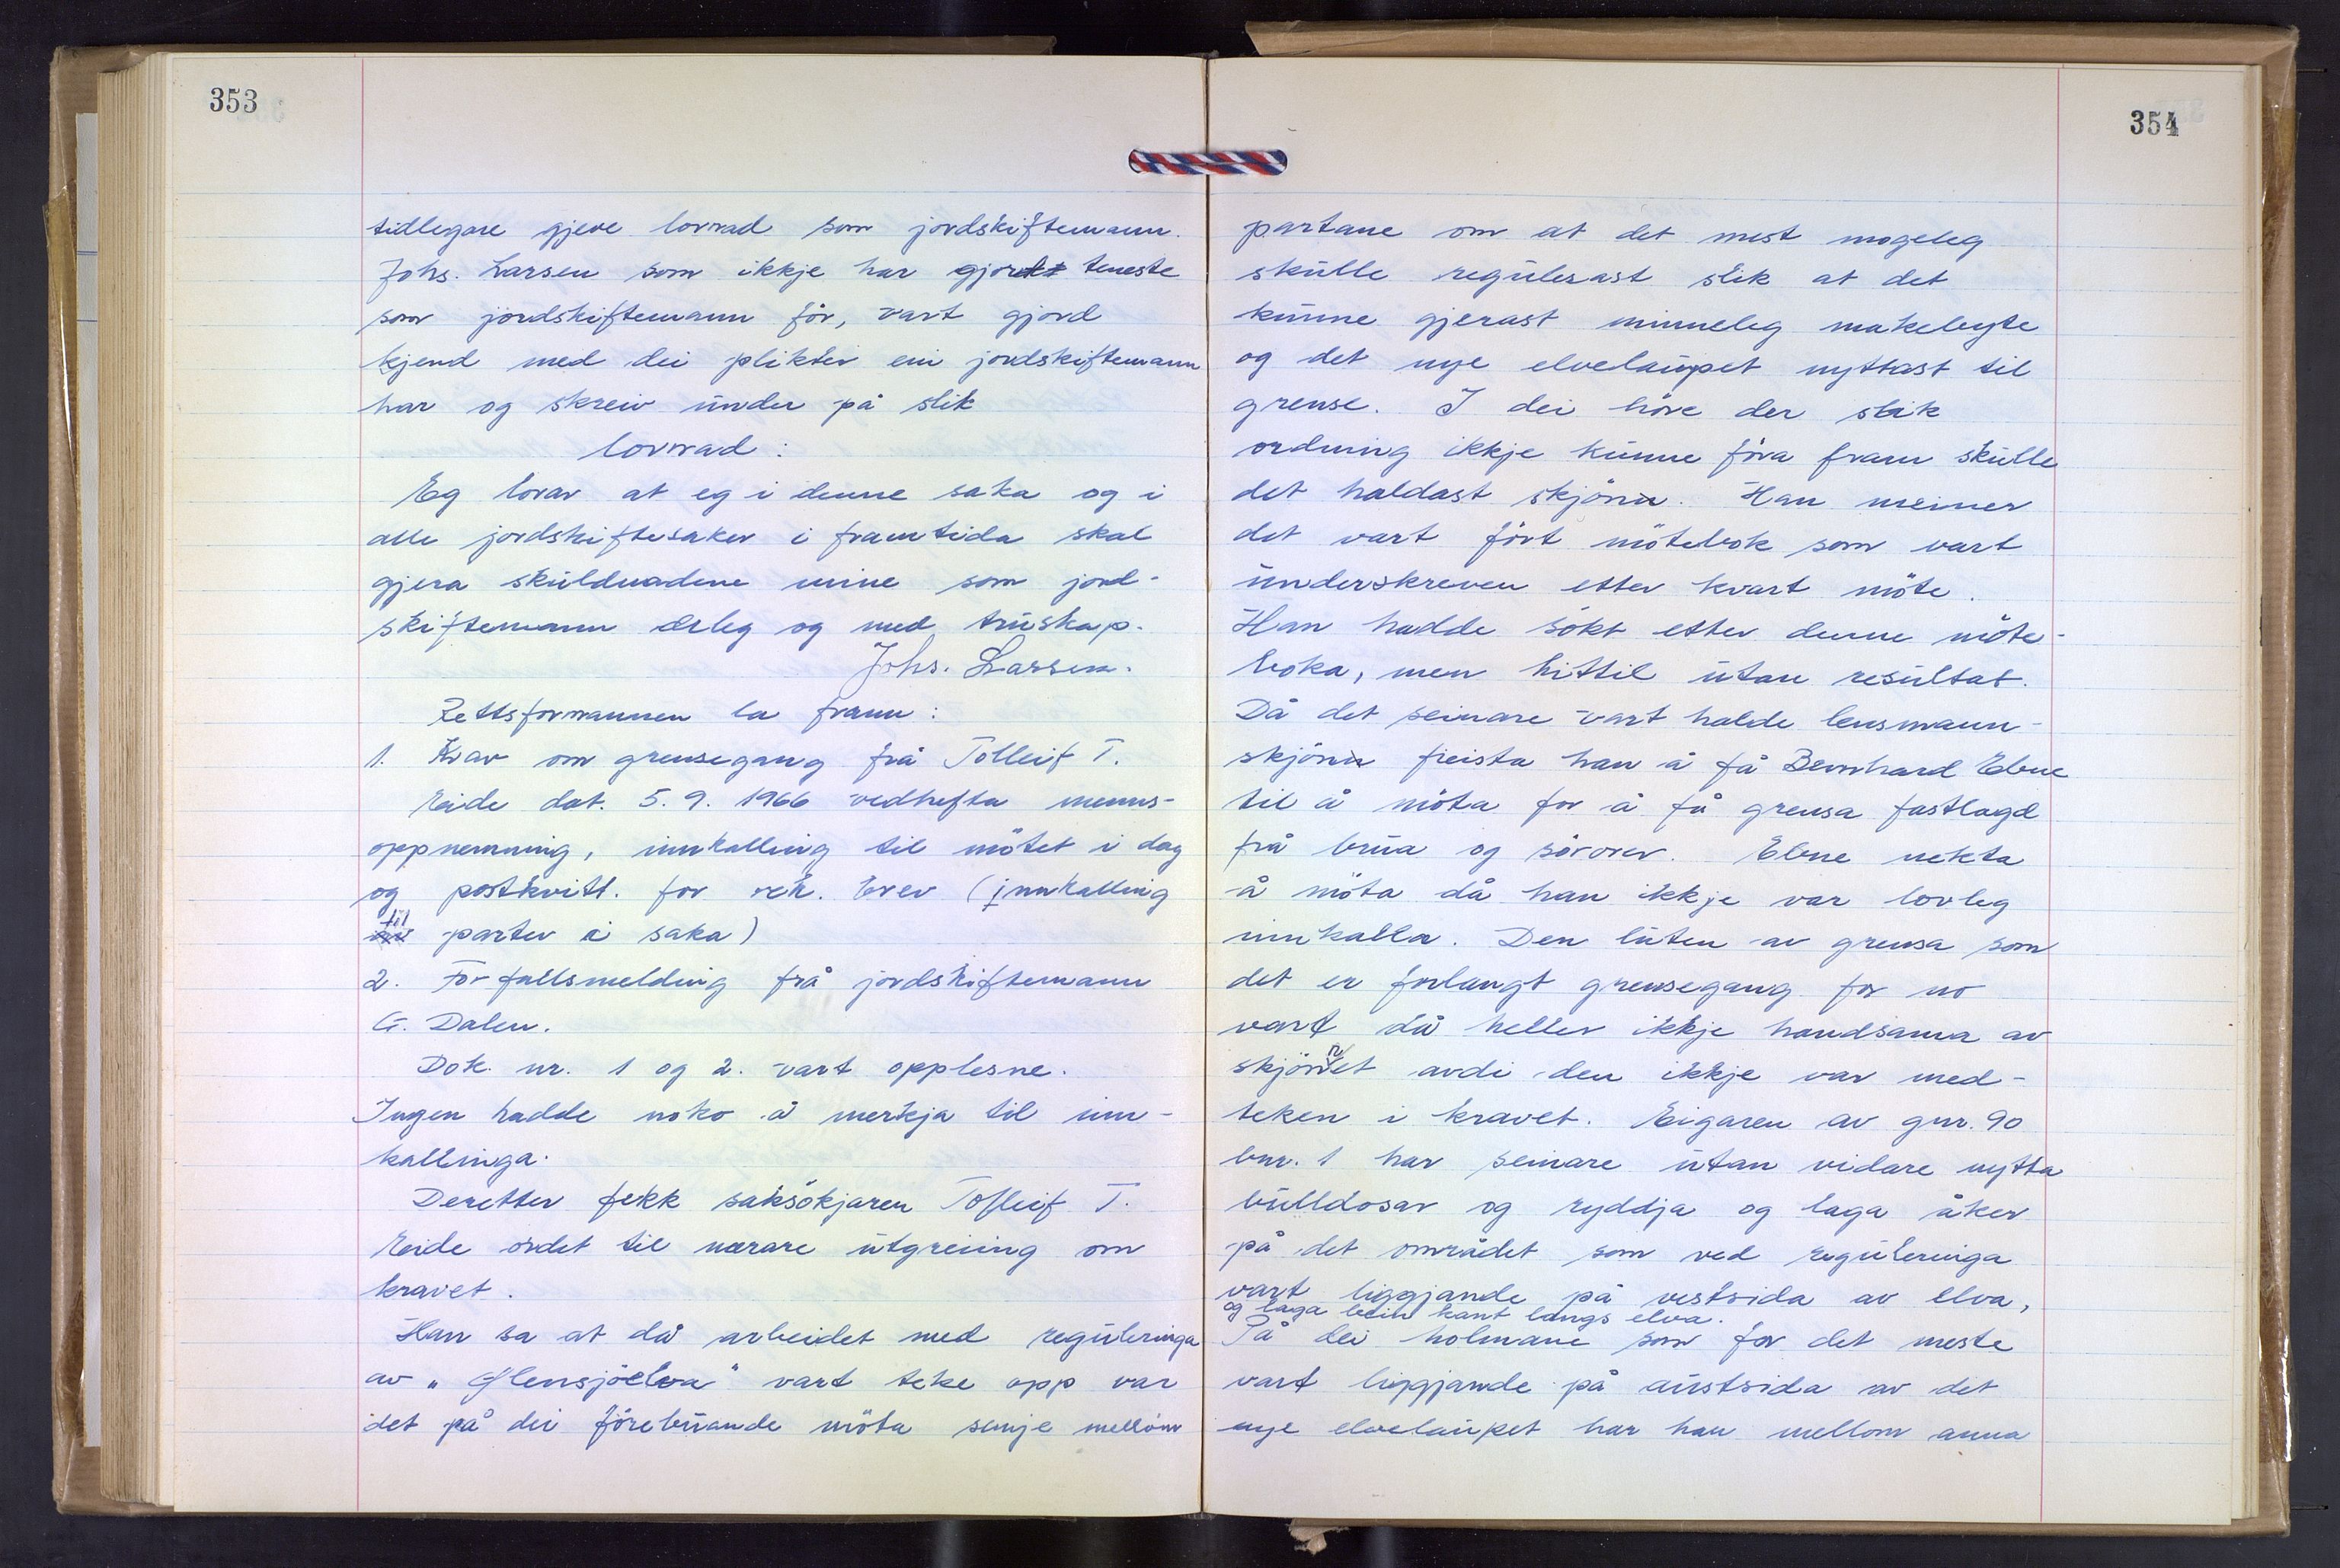 353
tidlegare gjeve lovnad som jordskiftemann.
Johs. Larsen som ikkje har gjort teneste
som jordskiftemann för, vart gjord
kjend med dei plikter ein jordskiftemann
har og skreiv under på slik
lovnad:
Eg lovar at eg i denne saka og i
alle jordskiftesaker i framtida skal
gjera skuldnadene mine som jord-
skiftemann ærleg og med truskap.
Johs. Larsen.
Rettsformannen la fram:
1. Krav om grensegang frå Tolleif T.
Eide dat. 5.9.1966 vedhefta menns-
oppnemning, innkalling til mötet i dag
og postkvitt. for rek. brev (innkalling
til parter i saka)
2. Forfallsmelding frå jordskiftemann
G. Dalen.
Dok. nr. 1 og 2. vart opplesne.
Ingen hadde noko å merkja til inn-
kallinga.
Deretter fekk saksökjaren Tolleif T.
Eide ordet til nærare utgreiing om
kravet.
Han sa at då arbeidet med reguleringa
av "Glensjöelva" vart teke opp var
det på dei förebuande möta semje mellom
354
partane om at det mest mogeleg
skulle regulerast slik at det
kunne gjerast minneleg makebyte
og det nye elvelaupet nyttast til
grense. I dei höve der slik
ordning ikkje kunne föra fram skulle
det haldast skjönn. Han meiner
det vart fört mötebok som vart
underskreven etter kvart möte.
Han hadde sökt etter denne möte-
boka, men hittil utan resultat.
Då det seinare vart halde lensmann-
skjönn freista han å få Bernhard Ebne
til å möta for å få grensa fastlagd
frå brua og sörover. Ebne nekta
å möta då han ikkje var lovleg
innkalla. Den luten av grensa som
det er forlangt grensegang for no
vart då heller ikkje handsama av
skjönnet avdi den ikkje var med-
teken i kravet. Eigaren av gnr. 90
bnr. 1 har seinare utan vidare nytta
bulldosar og ryddja og laga åker
på det området som ved reguleringa
vart liggjande på vestsida av elva,
og laga bein kant langs elva.
På dei holmane som for det meste
vart liggjande på austsida av det
nye elvelaupet har han mellom anna